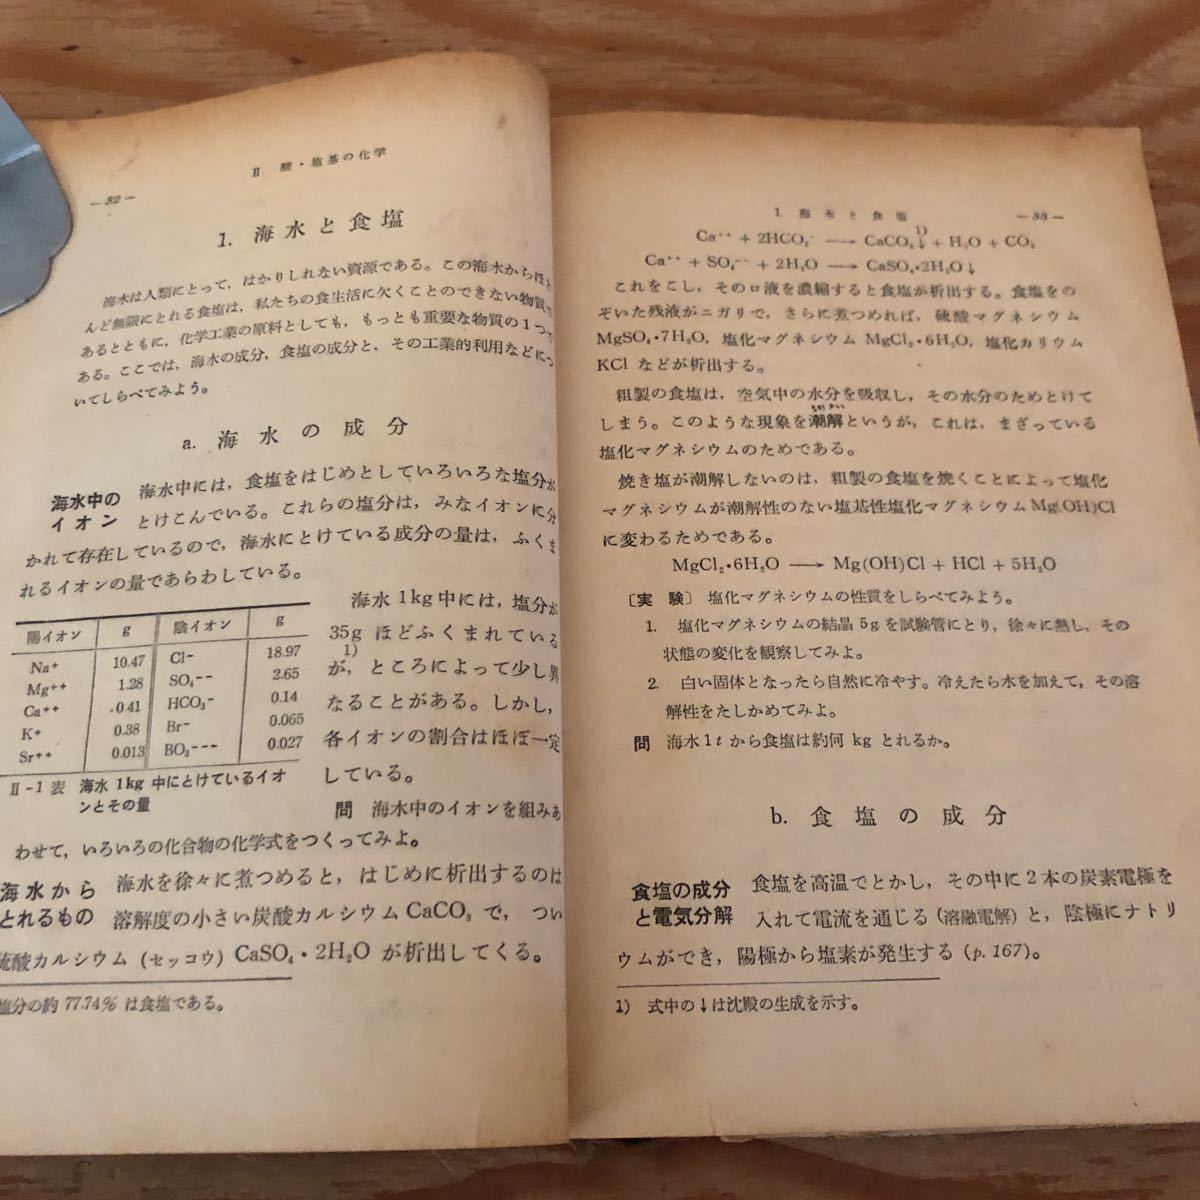 II 酸・塩基の化学
—32—
1. 海水と食塩
海水は人類にとって，はかりしれない資源である。この海水からほと
んど無限にとれる食塩は，私たちの食生活に欠くことのできない物質で
あるとともに，化学工業の原料としても，もっとも重要な物質の1つで
ある。ここでは，海水の成分，食塩の成分と，その工業的利用などにつ
いてしらべてみよう。
a. 海水の成分
海水中の
イオン
海水中には，食塩をはじめとしていろいろな塩分が
とけこんでいる。これらの塩分は，みなイオンに分
かれて存在しているので，海水にとけている成分の量は，ふくま
れるイオンの量であらわしている。
陽イオン g 陰イオン g
Na+ 10.47 Cl- 18.97
Mg++ 1.28 SO₄-- 2.65
Ca++ .041 HCO₃- 0.14
K+ 0.38 Br- 0.065
Sr++ 0.013 BO₃--- 0.027
II-1表 海水1kg中にとけているイオ
ンとその量
海水1kg中には，塩分が
35g ほどふくまれている
1)
が，ところによって少し異
なることがある。しかし，
各イオンの割合はほぼ一定
している。
問 海水中のイオンを組みあ
わせて，いろいろの化合物の化学式をつくってみよ。
海水から
とれるもの
海水を徐々に煮つめると，はじめに析出するのは
溶解度の小さい炭酸カルシウム CaCO₃ で，つい
硫酸カルシウム (セッコウ) CaSO₄・2H₂O が析出してくる。
塩分の約 77.74% は食塩である。
1. 海水と食塩
—33—
1)
Ca++ + 2HCO₃- ⟶ CaCO₃↓ + H₂O + CO₂
Ca++ + SO₄-- + 2H₂O ⟶ CaSO₄・2H₂O↓
これをこし，そのロ液を濃縮すると食塩が析出する。食塩をの
ぞいた残液がニガリで，さらに煮つめれば，硫酸マグネシウム
MgSO₄・7H₂O，塩化マグネシウム MgCl₂・6H₂O，塩化カリウム
KCl などが析出する。
粗製の食塩は，空気中の水分を吸収し，その水分のためとけて
しまう。このような現象を潮解というが，これは，まざっている
塩化マグネシウムのためである。
焼き塩が潮解しないのは，粗製の食塩を焼くことによって塩化
マグネシウムが潮解性のない塩基性塩化マグネシウム Mg(OH)Cl
に変わるためである。
MgCl₂・6H₂O ⟶ Mg(OH)Cl + HCl + 5H₂O
〔実 験〕 塩化マグネシウムの性質をしらべてみよう。
1. 塩化マグネシウムの結晶 5g を試験管にとり，徐々に熱し，その
状態の変化を観察してみよ。
2. 白い固体となったら自然に冷やす。冷えたら水を加えて，その溶
解性をたしかめてみよ。
問 海水1t から食塩は約何 kg とれるか。
b. 食塩の成分
食塩の成分
と電気分解
食塩を高温でとかし，その中に2本の炭素電極を
入れて電流を通じる (溶融電解) と，陰極にナトリ
ウムができ，陽極から塩素が発生する (p. 167)。
1) 式中の↓は沈殿の生成を示す。